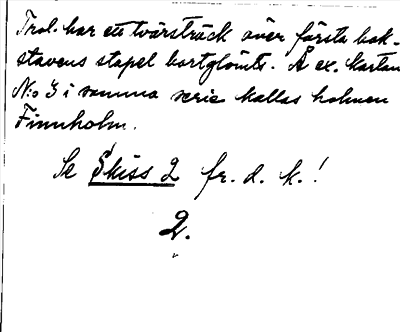 Trol. har ett tvärsträck över första bok-
stavens stapel bortglömts. Å ex. kartan
N:o 3 i samma serie kallas holmen
Finnholm.
Se Skiss 2 fr. d. k.!
2.